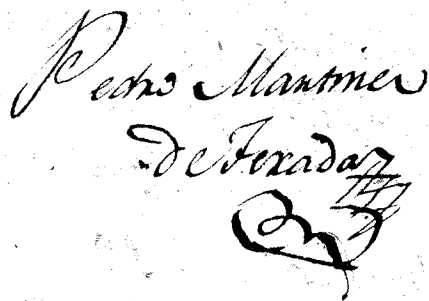 Pedro Martinez
de Texada